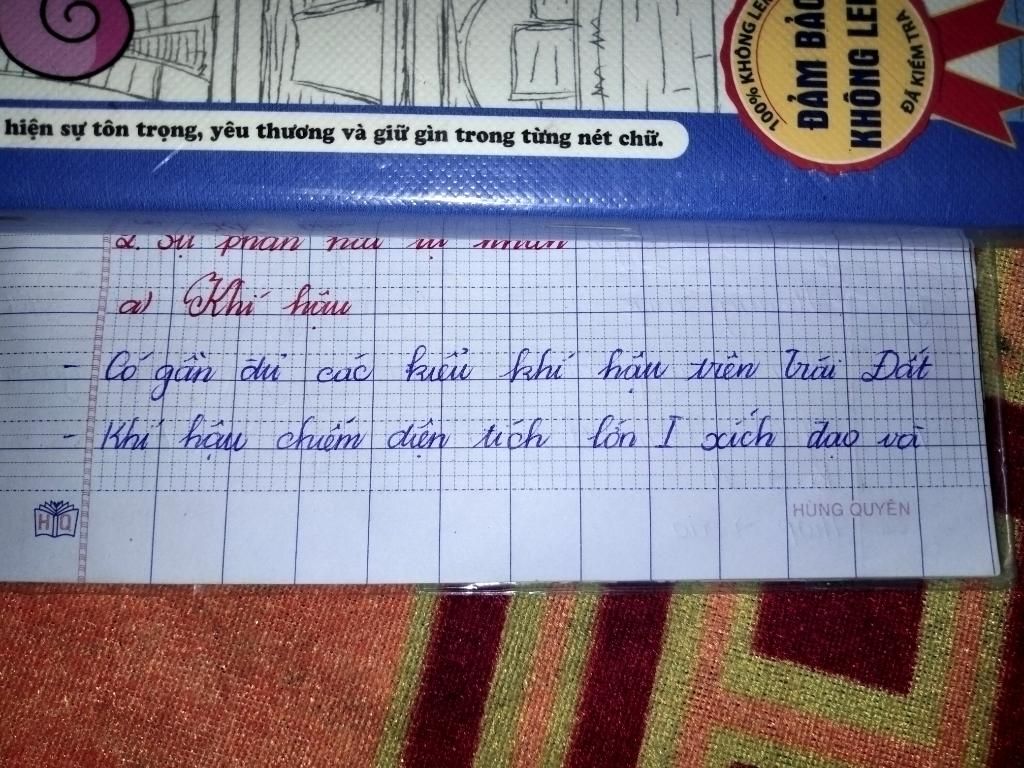 100% KHÔNG LEM
ĐẢM BẢO
KHÔNG LEM
ĐÃ KIỂM TRA
hiện sự tôn trọng, yêu thương và giữ gìn trong từng nét chữ.
2. Sự phân
a) Khí hậu
- Có gần đủ các kiểu khí hậu trên Trái Đất
- Khí hậu chiếm diện tích lớn I xích đạo và
HQ
HÙNG QUYÊN